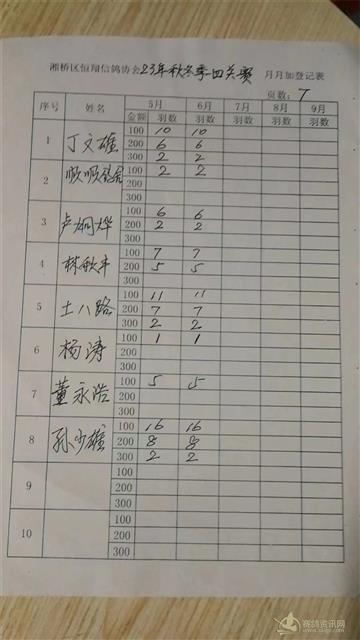 湘桥区恒翔信鸽协会23年秋冬季四关赛 月月加登记表
页数：7
序号 姓名 5月 6月 7月 8月 9月
金额 羽数 羽数 羽数 羽数 羽数
1 丁文雄 100 10 10
200 6 6
300 2 2
2 顺顺鸽舍 100 2 2
200
300
3 卢炯烨 100 6 6
200 2 2
300
4 林敏丰 100 7 7
200 5 5
300
5 土八路 100 11 11
200 7 7
300 2 2
6 杨涛 100 1 1
200
300
7 董永浩 100 5 5
200
300
8 孙少雄 100 16 16
200 8 8
300 2 2
9 100
200
300
10 100
200
300
赛鸽资讯网